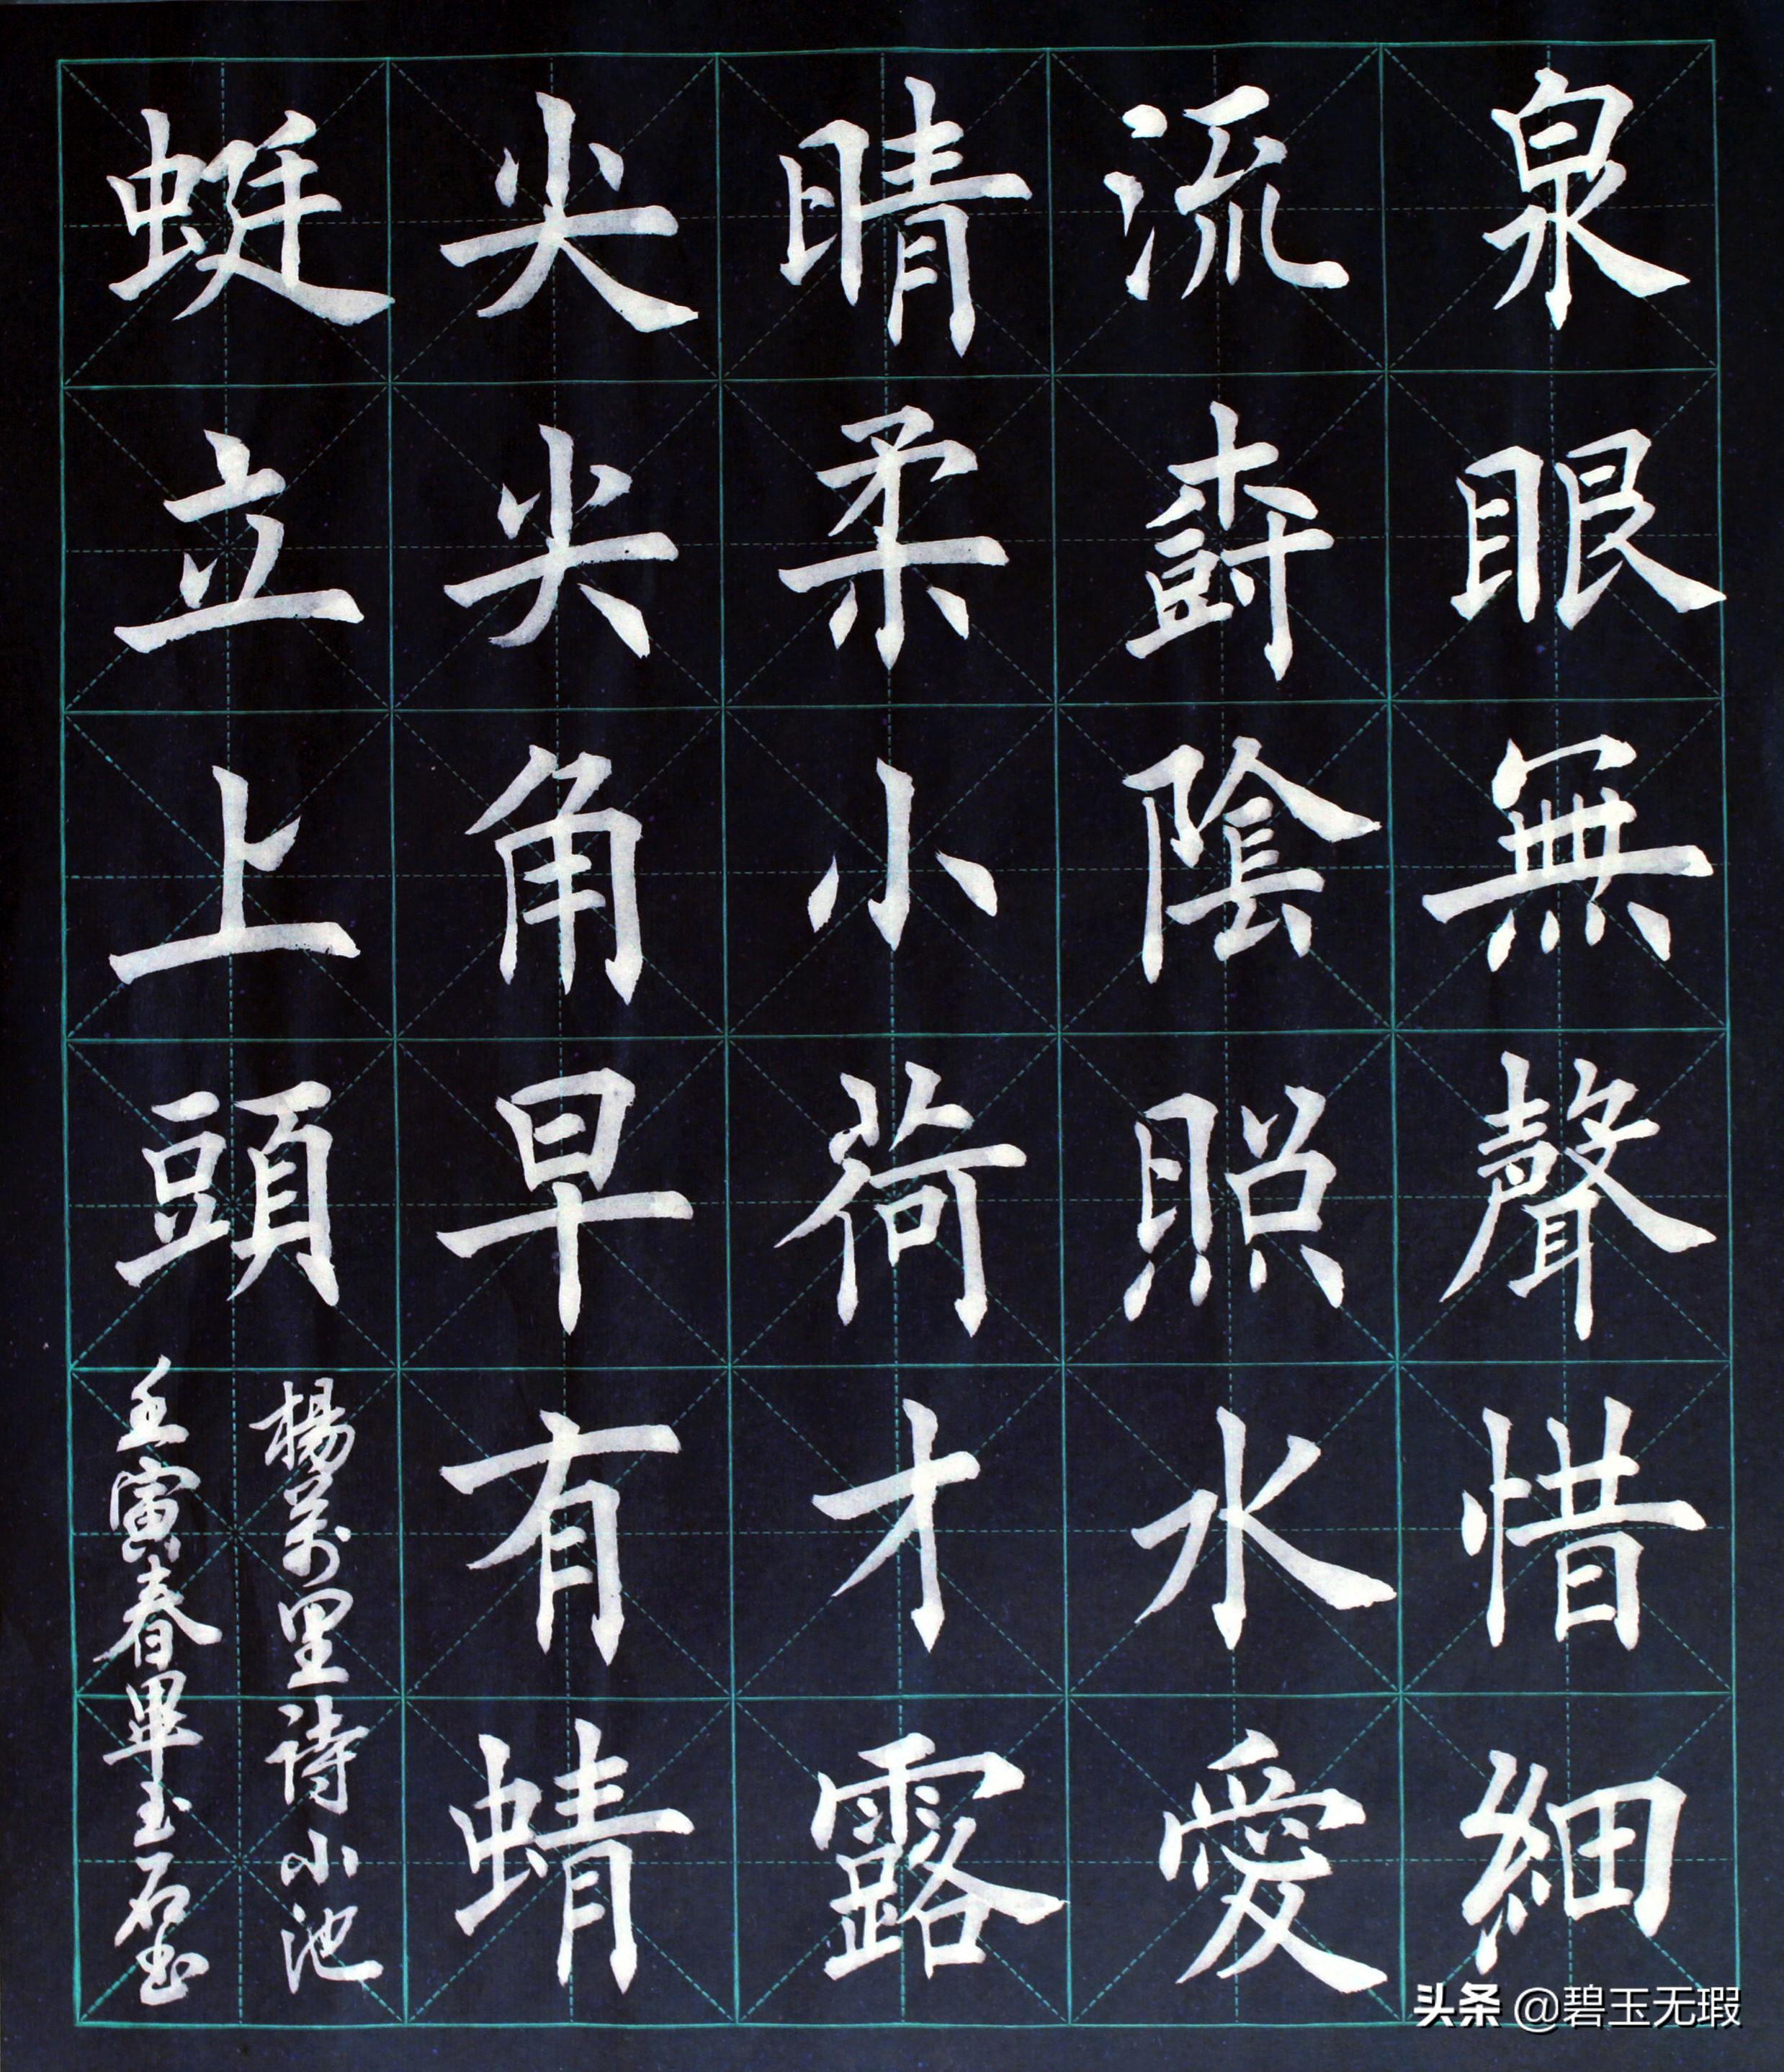 泉眼無聲惜細
流樹陰照水愛
晴柔小荷才露
尖尖角早有蜻
蜓立上頭
楊萬里詩小池
壬寅春畢玉石書
头条 @碧玉无瑕